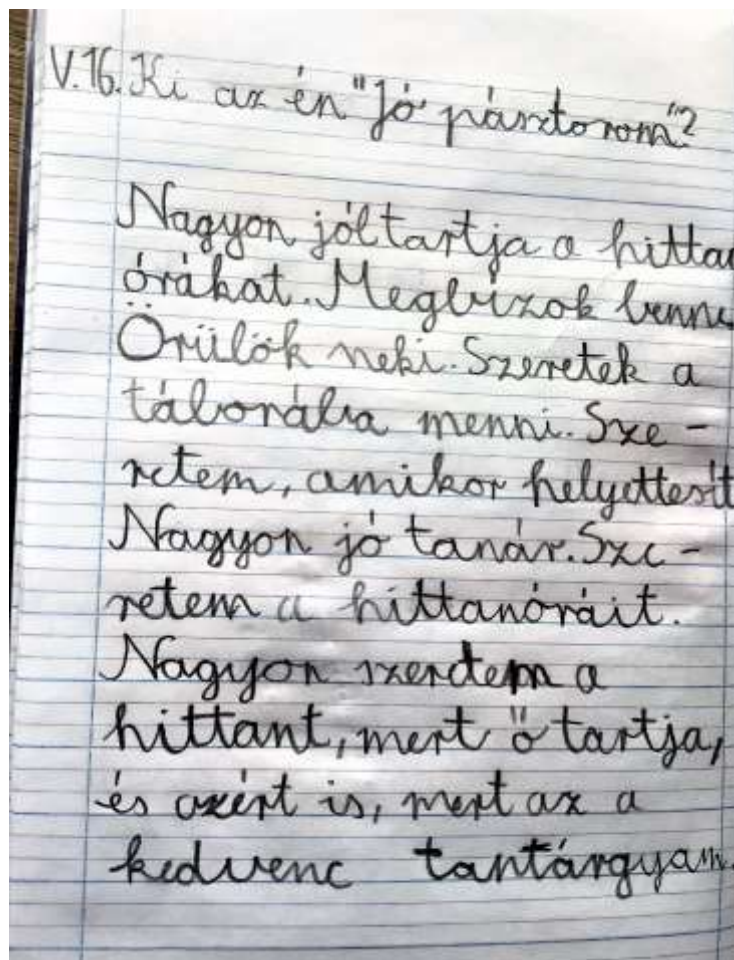 V.16. Ki az én "Jó pásztorom"?
Nagyon jól tartja a hittan
órákat. Megbízok benne
Örülök neki. Szeretek a
táborába menni. Sze-
retem, amikor helyettesít
Nagyon jó tanár. Sze-
retem a hittanóráit.
Nagyon szeretem a
hittant, mert ő tartja,
és azért is, mert az a
kedvenc tantárgyam.